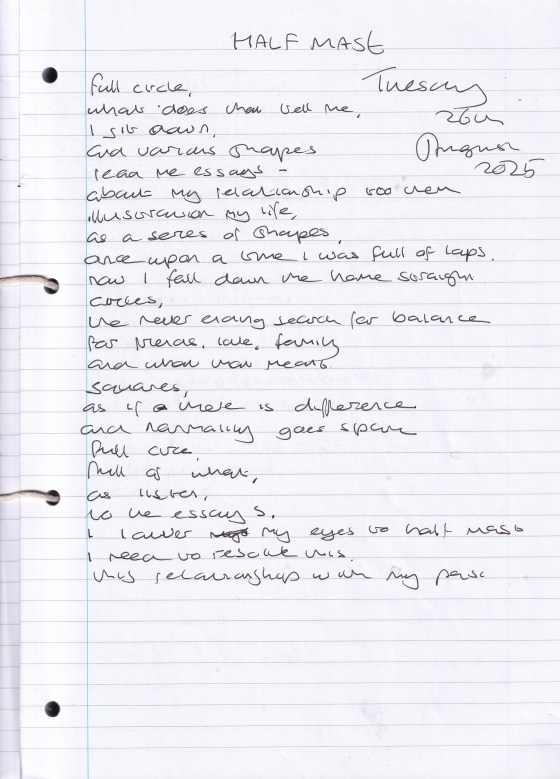 HALF MAST
Tuesday
26th
August
2025
full circle,
what does that tell me,
I sit down,
and various shapes
read me essays -
about my relationship too them
illustration my life,
as a series of shapes,
once upon a time I was full of laps.
now I fall down the home straight
circles,
the never ending search for balance
for friends, love, family
and what that means
squares,
as if there is difference
and normality goes spare
full circle,
full of what,
as listen,
to the essays.
I lower my eyes to half mast
I need to resolve this.
this relationship with my past